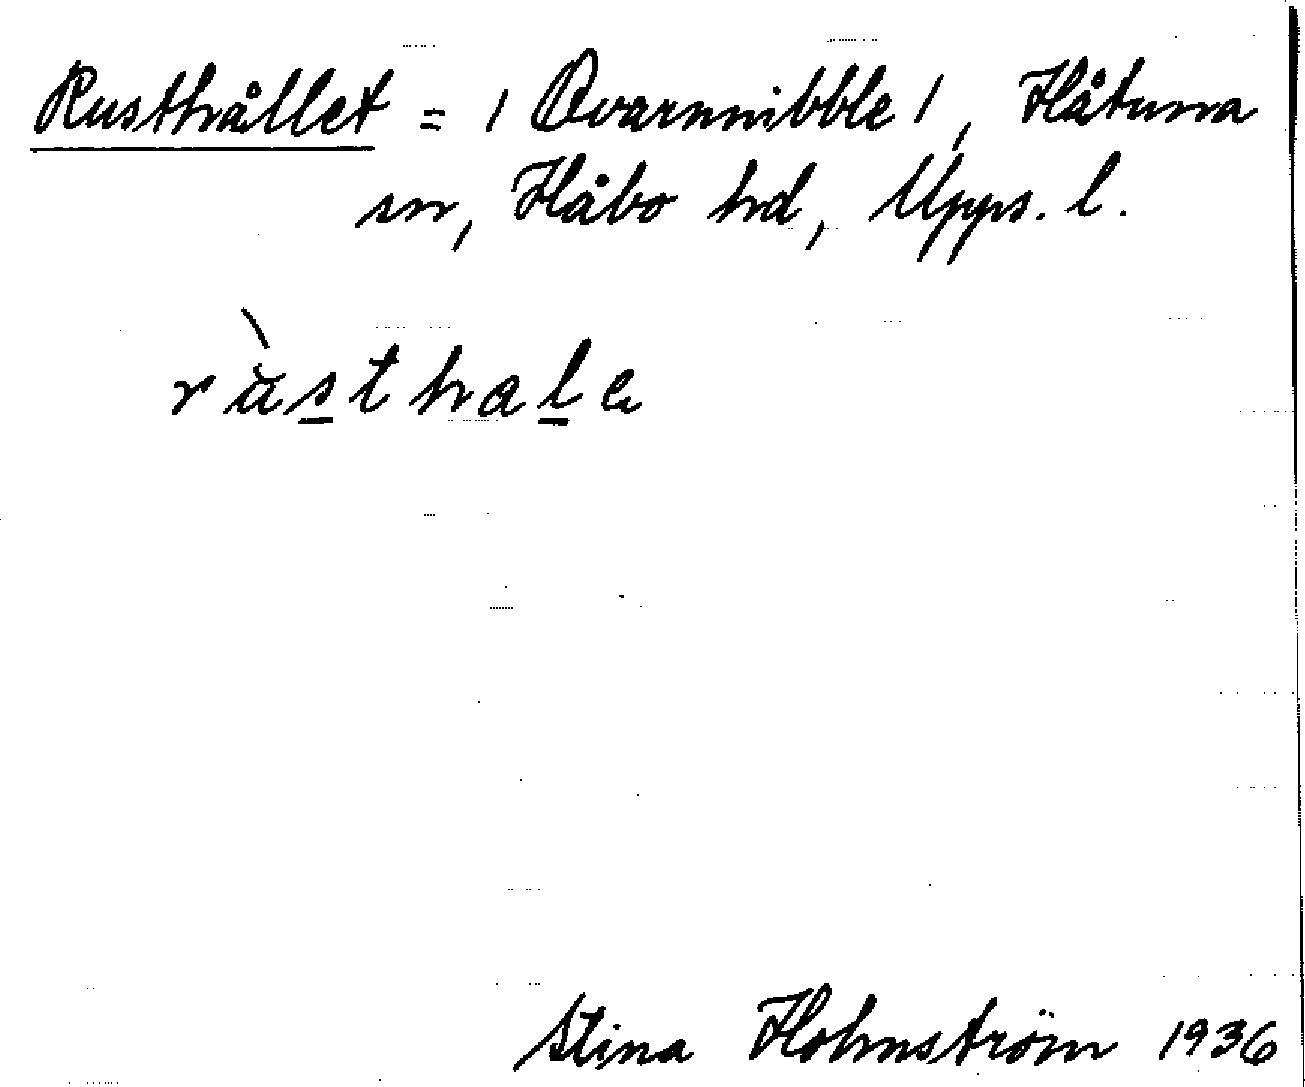 Rusthållet = / Qvarnnibble /, Håtuna
sn, Håbo hd, Upps. l.
ràsthale
Stina Holmström 1936